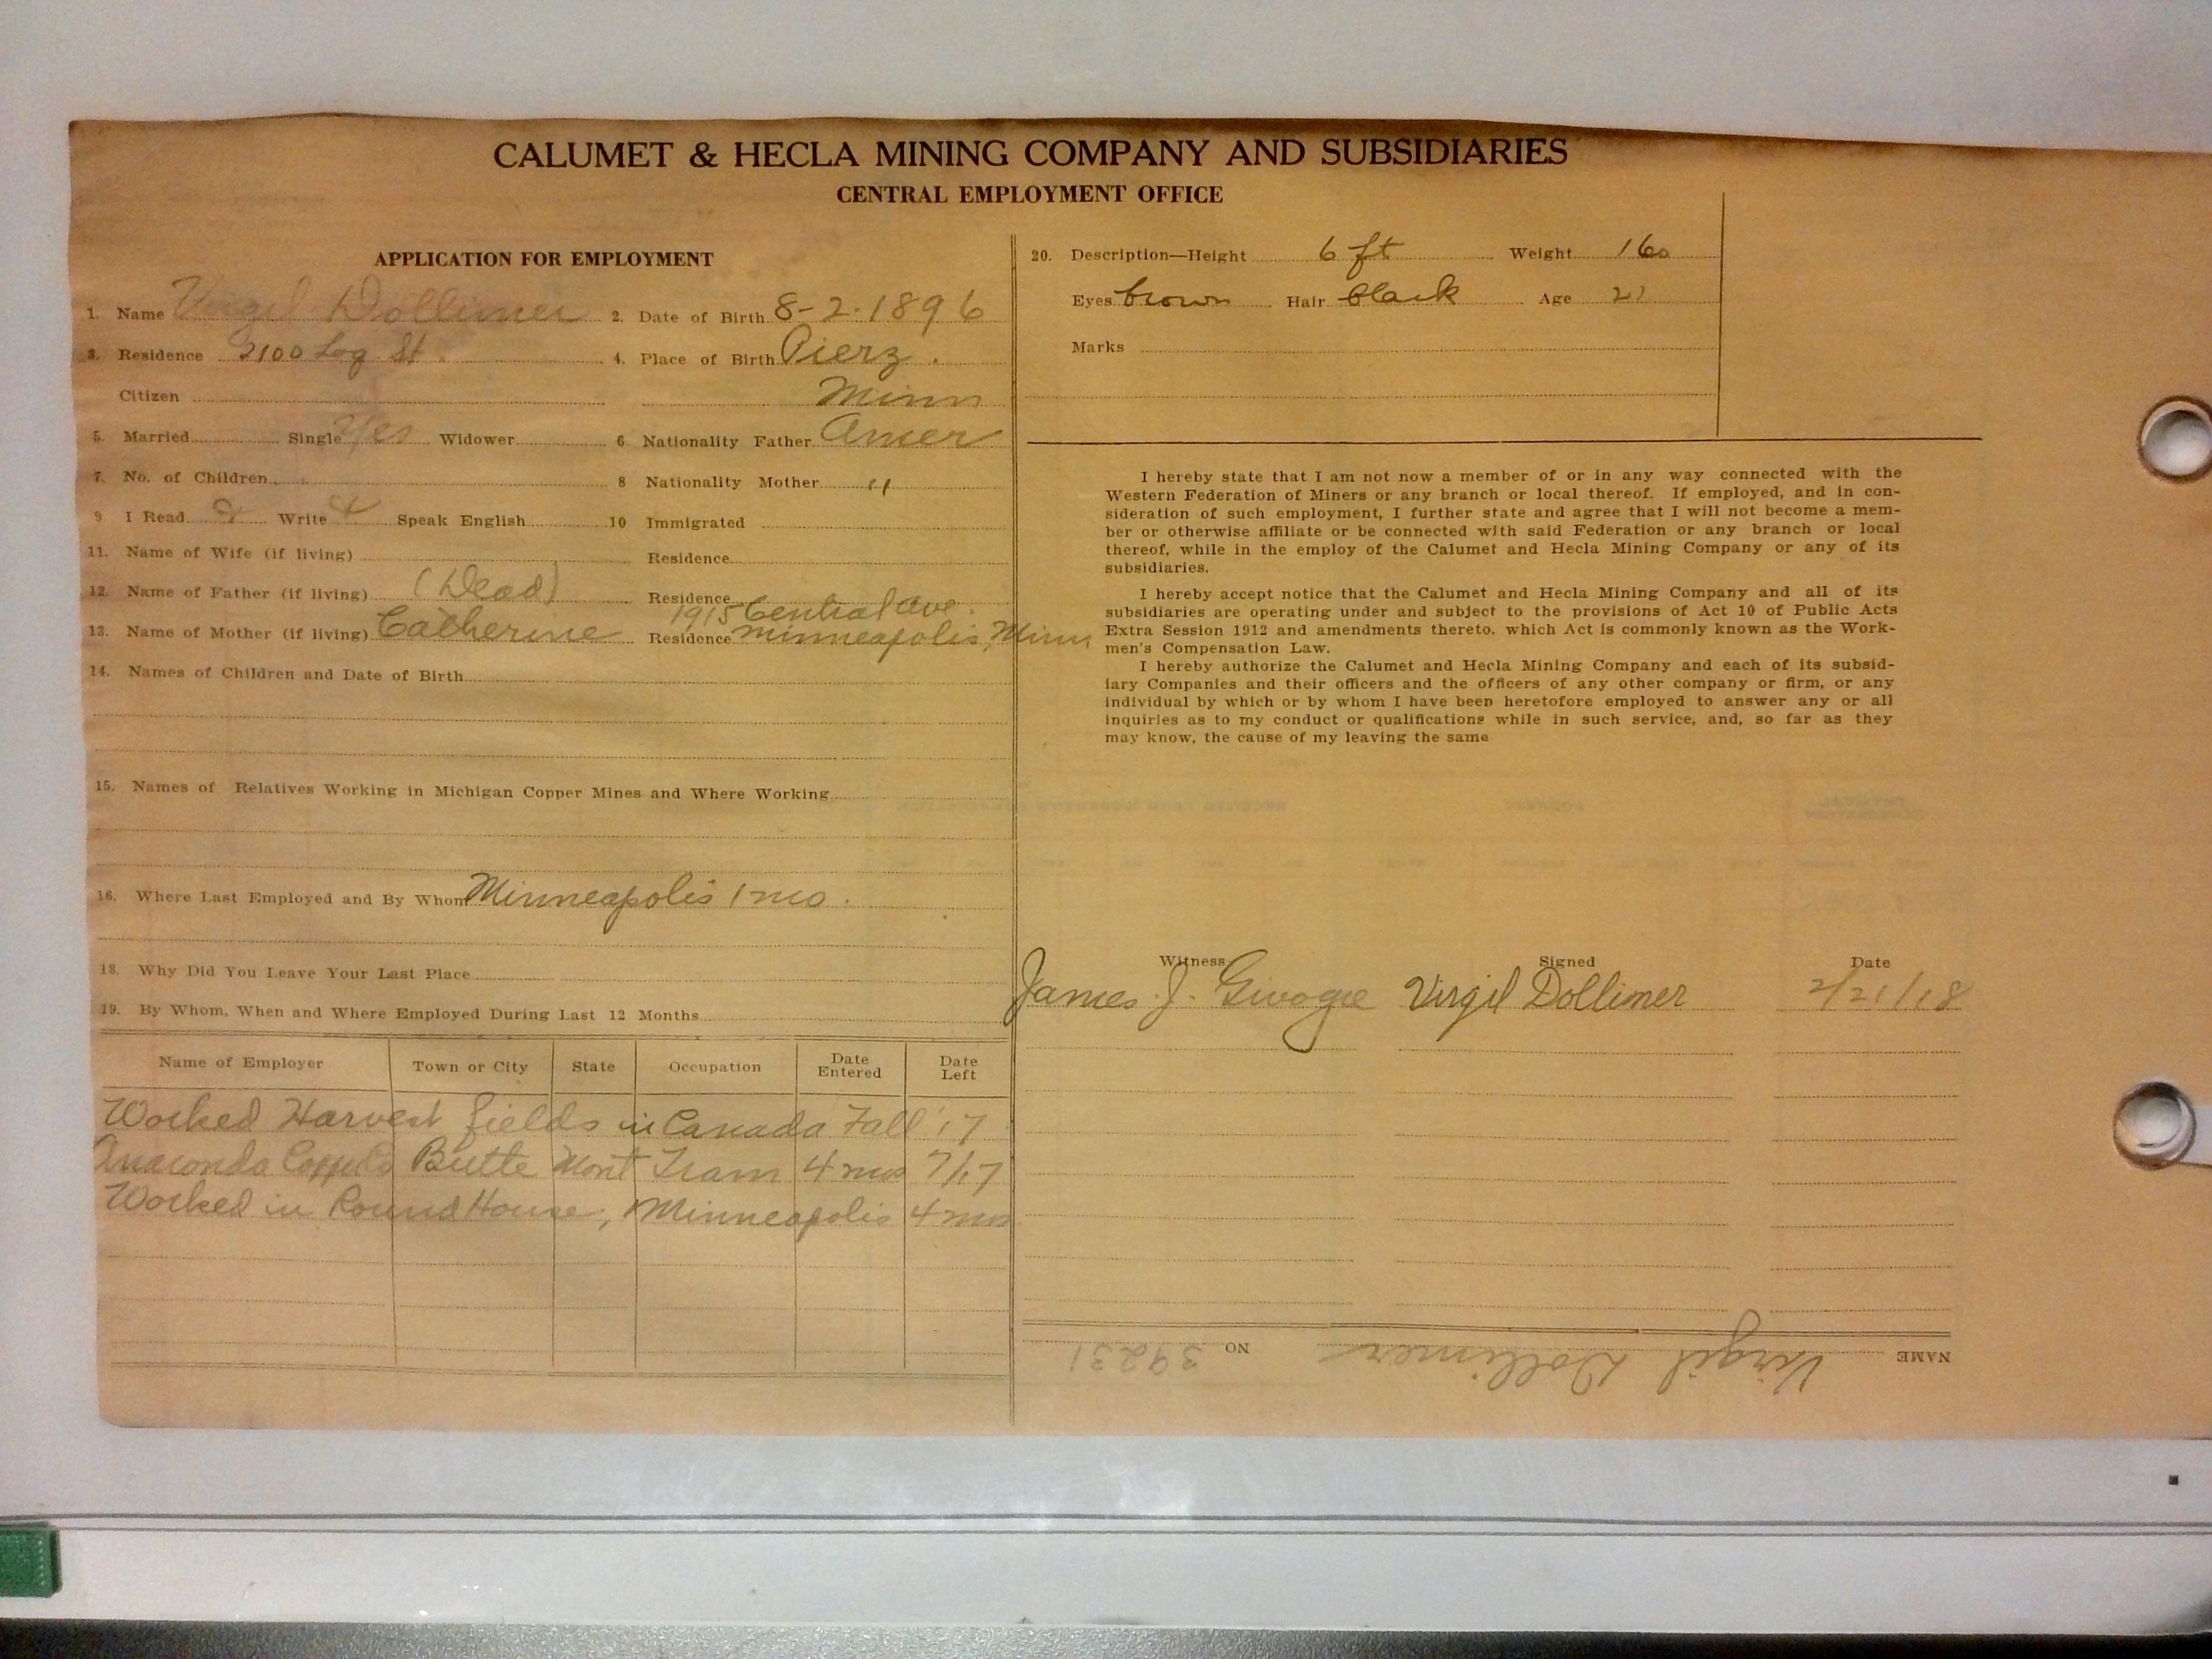 CALUMET & HECLA MINING COMPANY AND SUBSIDIARIES
CENTRAL EMPLOYMENT OFFICE
APPLICATION FOR EMPLOYMENT
1. Name Virgil Dollimer 2. Date of Birth 8-2-1896
3. Residence 2100 Log St. 4. Place of Birth Pierz.
Citizen Minn
5. Married Single Yes Widower 6 Nationality Father Amer
7. No. of Children 8 Nationality Mother "
9 I Read Write Speak English 10 Immigrated
11. Name of Wife (if living) Residence
12. Name of Father (if living) (Dead) Residence
1915 Central Ave.
13. Name of Mother (if living) Catherine Residence Minneapolis, Minn
14. Names of Children and Date of Birth
15. Names of Relatives Working in Michigan Copper Mines and Where Working
16. Where Last Employed and By Whom Minneapolis 1 mo.
18. Why Did You Leave Your Last Place
19. By Whom, When and Where Employed During Last 12 Months
Name of Employer Town or City State Occupation Date Entered Date Left
Worked Harvest fields in Canada Fall '17
Anaconda Copper Co Butte Mont Tram 4 mos 7/17
Worked in Round House, Minneapolis 4 mos.
20. Description—Height 6 ft Weight 160
Eyes brown Hair black Age 21
Marks
I hereby state that I am not now a member of or in any way connected with the
Western Federation of Miners or any branch or local thereof. If employed, and in con-
sideration of such employment, I further state and agree that I will not become a mem-
ber or otherwise affiliate or be connected with said Federation or any branch or local
thereof, while in the employ of the Calumet and Hecla Mining Company or any of its
subsidiaries.
I hereby accept notice that the Calumet and Hecla Mining Company and all of its
subsidiaries are operating under and subject to the provisions of Act 10 of Public Acts
Extra Session 1912 and amendments thereto, which Act is commonly known as the Work-
men's Compensation Law.
I hereby authorize the Calumet and Hecla Mining Company and each of its subsid-
iary Companies and their officers and the officers of any other company or firm, or any
individual by which or by whom I have been heretofore employed to answer any or all
inquiries as to my conduct or qualifications while in such service, and, so far as they
may know, the cause of my leaving the same
Witness Signed Date
James J. Virgil Dollimer 2/21/18
NAME Virgil Dollimer NO 39231